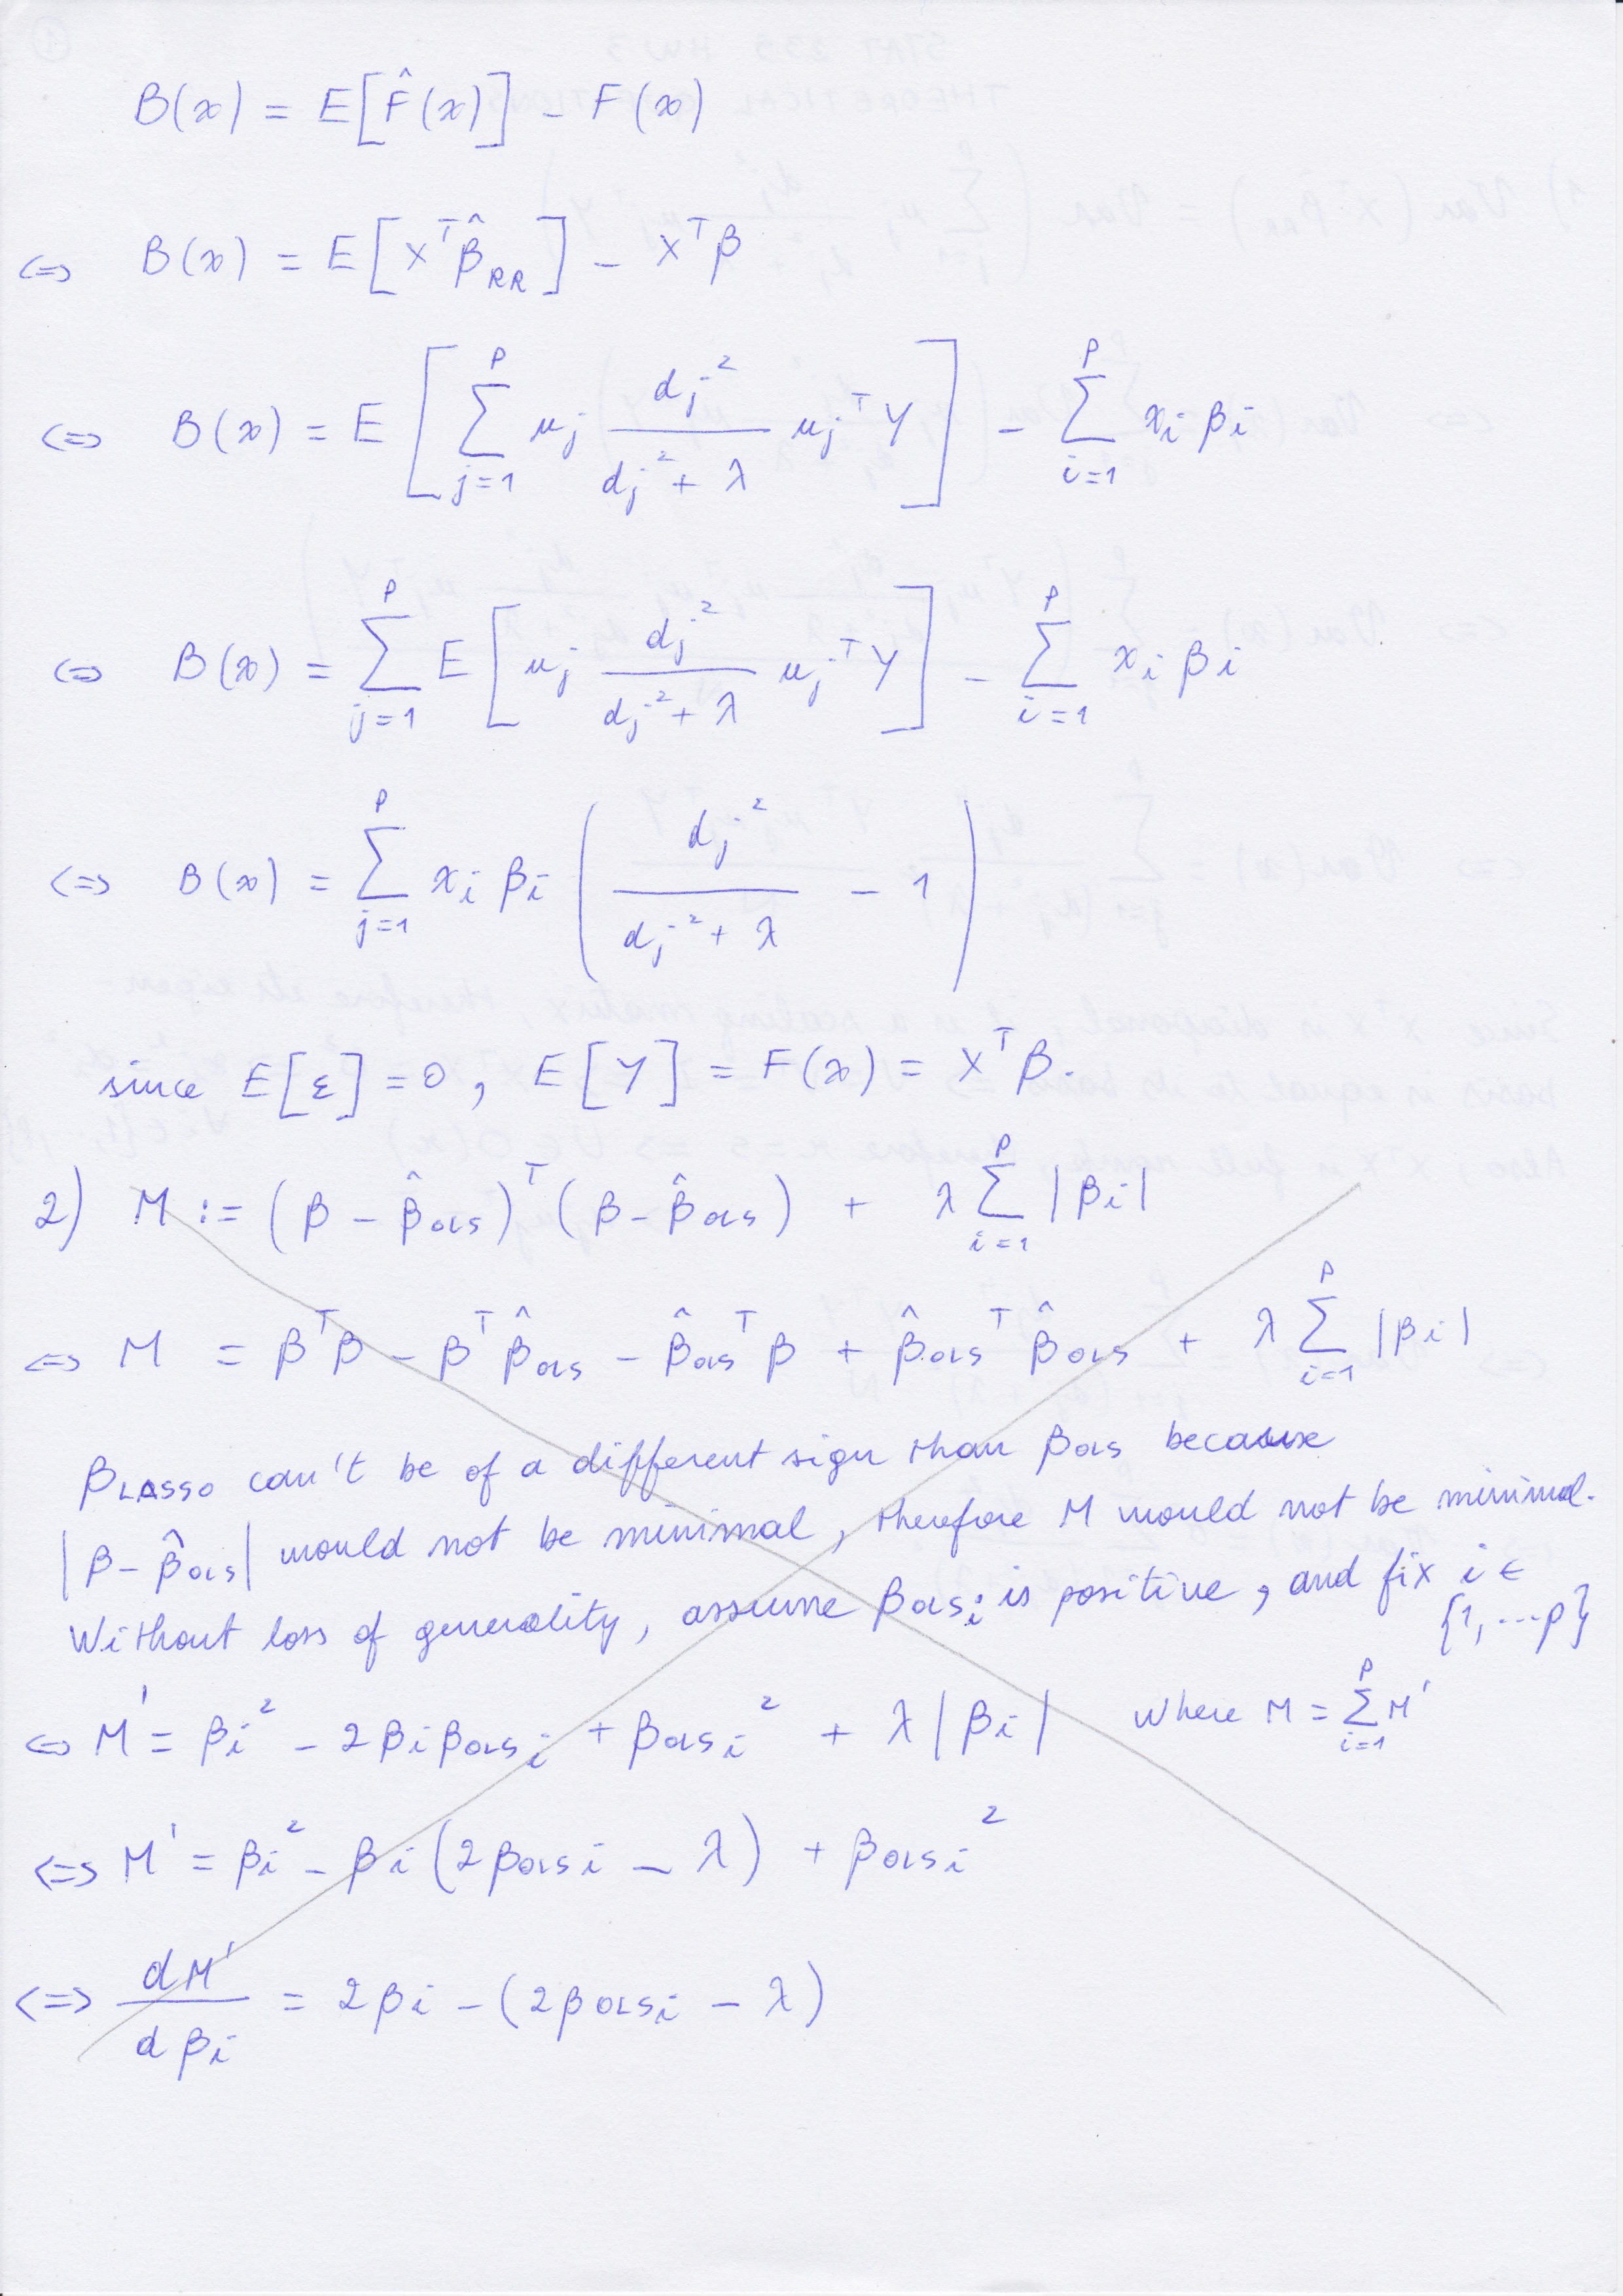 B(x) = E[F̂(x)] - F(x)
<=> B(x) = E[X^T β̂_RR] - X^T β
<=> B(x) = E[∑_{j=1}^{p} u_j \frac{d_j^2}{d_j^2 + λ} u_j^T Y] - ∑_{i=1}^{p} x_i β_i
<=> B(x) = ∑_{j=1}^{p} E[u_j \frac{d_j^2}{d_j^2 + λ} u_j^T Y] - ∑_{i=1}^{p} x_i β_i
<=> B(x) = ∑_{j=1}^{p} x_i β_i (\frac{d_j^2}{d_j^2 + λ} - 1)
since E[ε] = 0, E[Y] = F(x) = X^T β.
2) M := (β - β̂_OLS)^T (β - β̂_OLS) + λ ∑_{i=1}^{p} |β_i|
<=> M = β^T β - β^T β̂_OLS - β̂_OLS^T β + β̂_OLS^T β̂_OLS + λ ∑_{i=1}^{p} |β_i|
β_LASSO can't be of a different sign than β_OLS because
|β - β̂_OLS| would not be minimal, therefore M would not be minimal.
Without loss of generality, assume β_OLS_i is positive, and fix i ∈ {1, ... p}
<=> M' = β_i^2 - 2 β_i β_OLS_i + β_OLS_i^2 + λ |β_i| where M = ∑_{i=1}^{p} M'
<=> M' = β_i^2 - β_i (2 β_OLS_i - λ) + β_OLS_i^2
<=> \frac{dM'}{dβ_i} = 2 β_i - (2 β_OLS_i - λ)